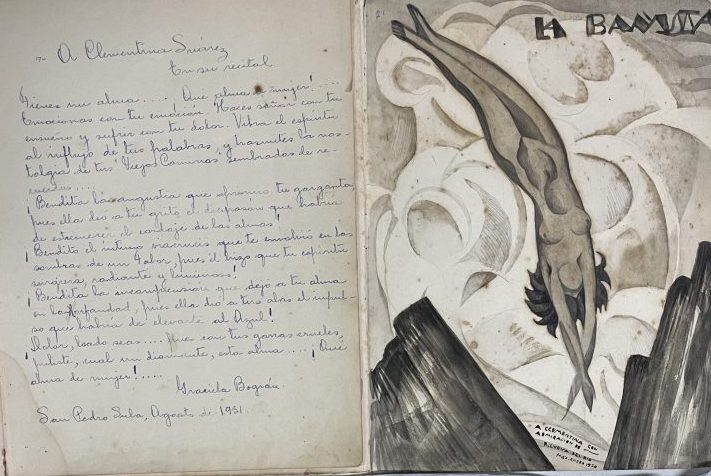 A Clementina Suárez
En su recital
Tienes un alma..... Que alma de mujer!....
Emocionas con tu emoción. Haces soñar con tu
ensueño y sufrir con tu dolor. Vibra el espíritu
al influjo de tus palabras, y trasmites la nos-
talgia de tus Viejos Caminos sembrados de re-
cuerdos...
¡Bendita la angustia que oprimió tu garganta
pues ella dió a tu grito el diapasón que habría
de estremecer el cordaje de las almas!
¡Bendito el íntimo viacrucis que te envolvió en las
sombras de un Tabor pues él hizo que tu espíritu
surgiera, radiante y luminoso!
¡Bendita la incomprensión que dejó a tu alma
en la horfandad, pues ella dió a tus alas el impul-
so que habría de elevarte al Azul!
¡Dolor, loado seas.... pues con tus garras crueles
puliste, cual un diamante, esta alma.... ¡Qué
alma de mujer!.....
Graciela Bográn
San Pedro Sula, Agosto de 1931.
21
LA BAÑISTA
A CLEMENTINA CON
ADMIRACION DE
DEL RIO